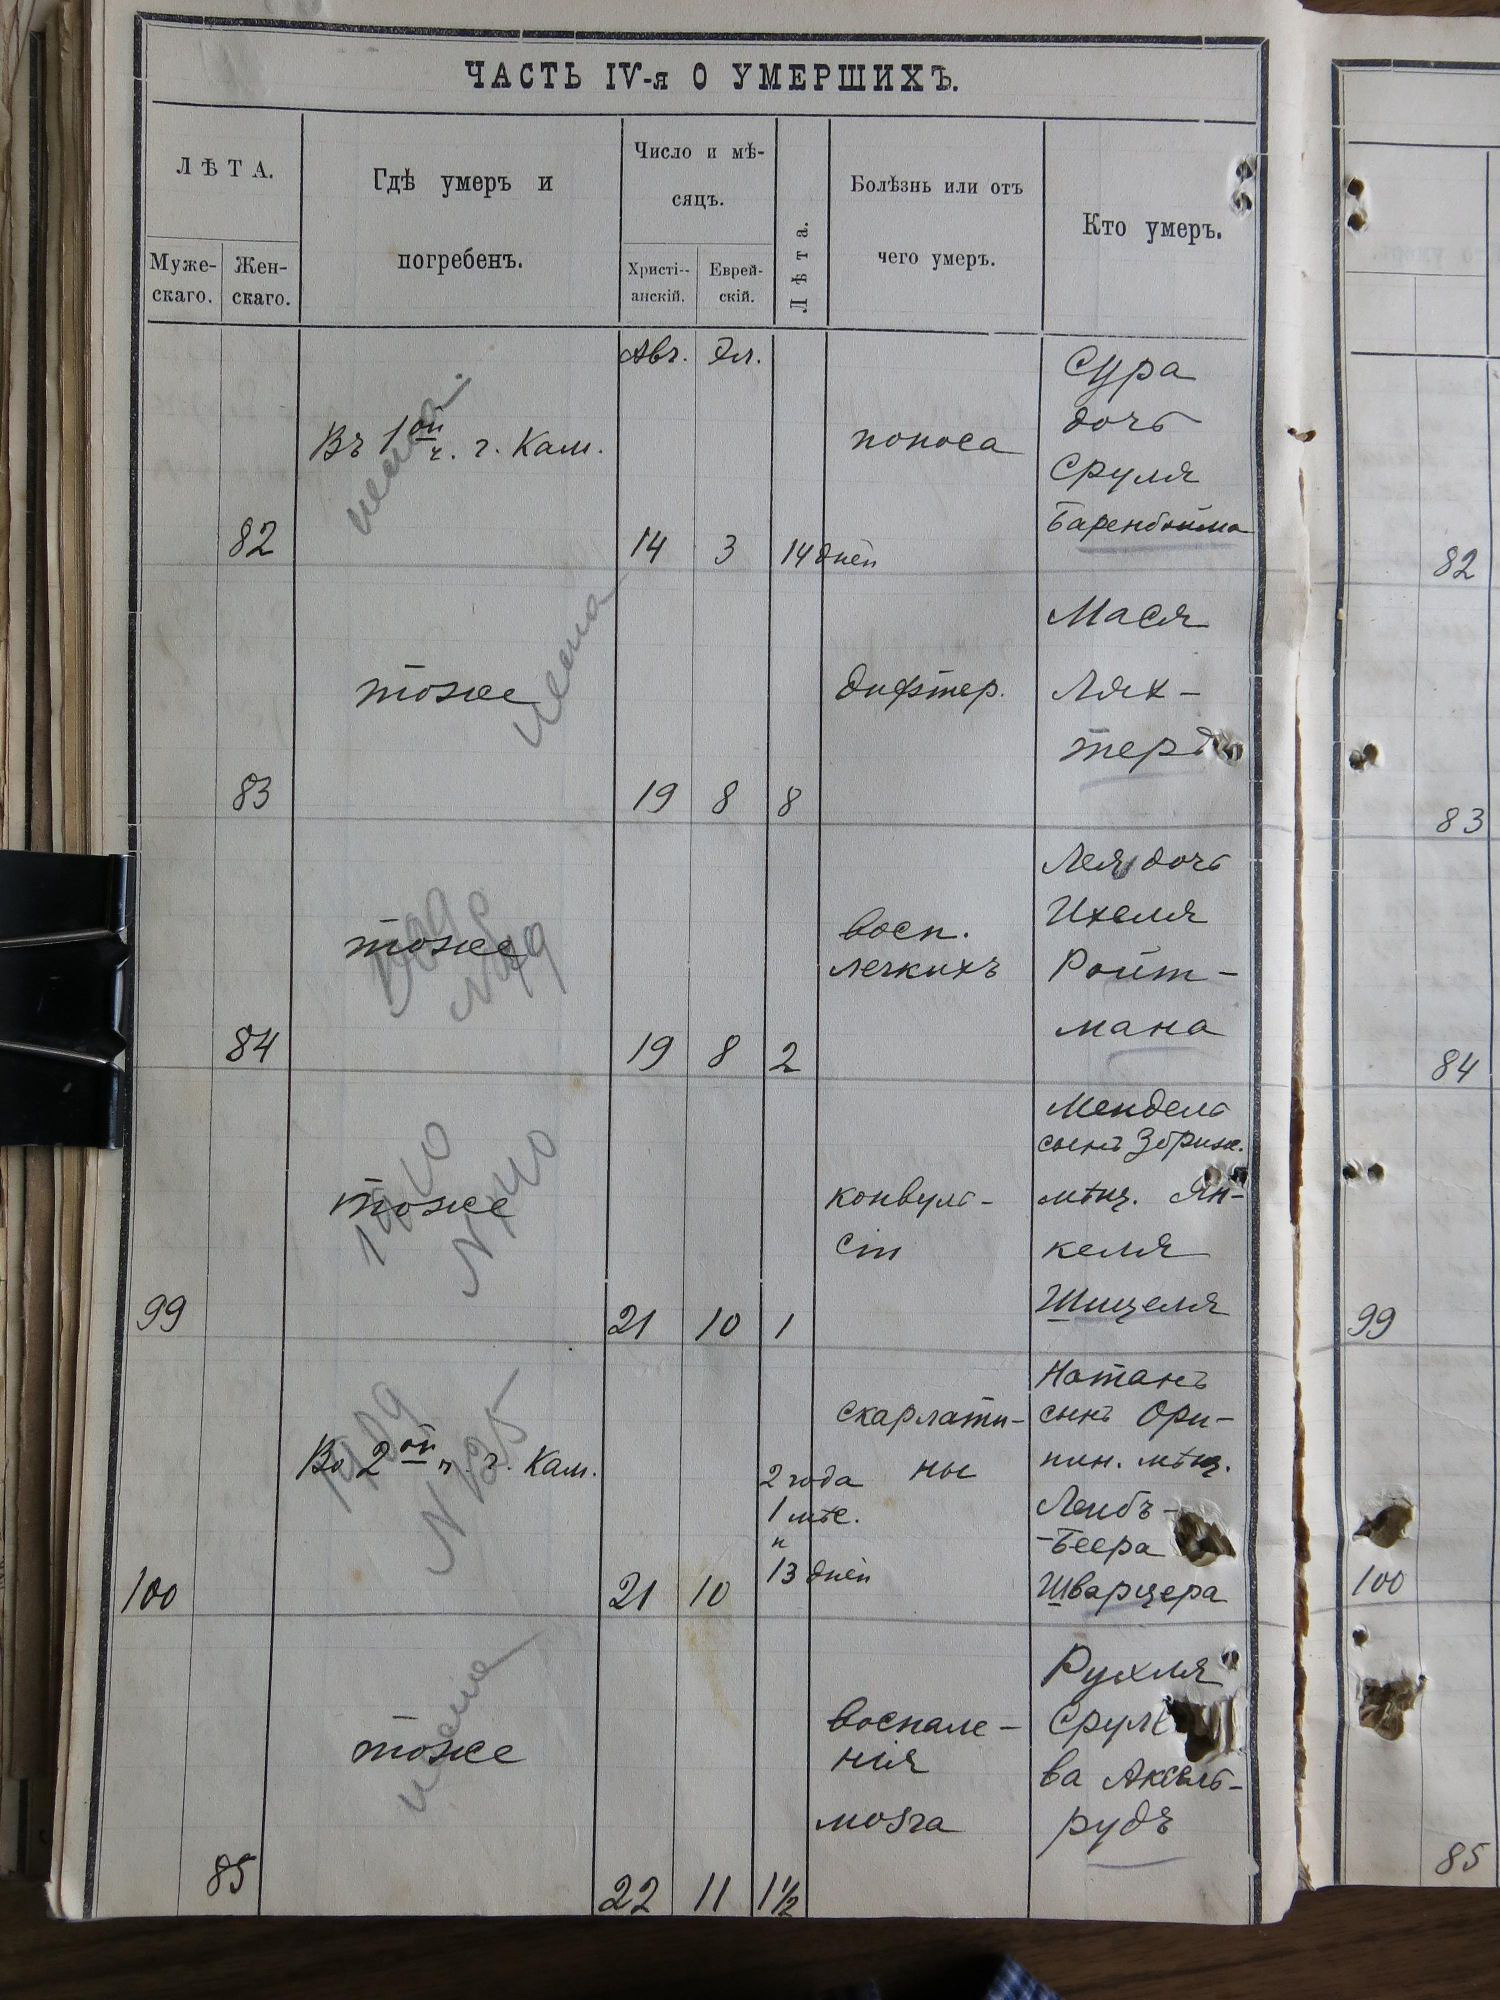 ЧАСТЬ IV-я О УМЕРШИХЪ.
ЛѢТА.
Муже-
скаго.
Жен-
скаго.
Гдѣ умеръ и
погребенъ.
Число и мѣ-
сяцъ.
Христі-
анскій.
Еврей-
скій.
Лѣта.
Болѣзнь или отъ
чего умеръ.
Кто умеръ.
Авг. Эл.
82
Въ 1ой ч. г. Кам.
14 3 14 дней
поноса
Сура
дочь
Сруля
Баренбойма
82
83
тоже
19 8 8
дифтер.
Мася
Лях-
теръ
83
84
тоже
1909
N 79
19 8 2
восп.
легкихъ
Лея дочь
Ихеля
Ройт-
мана
84
99
тоже
1910
N 110
21 10 1
конвуль-
сіи
Мендель
сынъ Збриж.
мѣщ. Ян-
келя
Шицеля
99
100
Во 2ой ч. г. Кам.
1909
N 135
21 10
2 года
1 мѣс.
и
13 дней
скарлати-
ны
Нотанъ
сынъ Ори-
нин. мѣщ.
Лейбъ-
-Беера
Шварцера
100
85
тоже
22 11 1 1/2
воспале-
нія
мозга
Рухля
Срул
ва Аксель-
рудъ
85